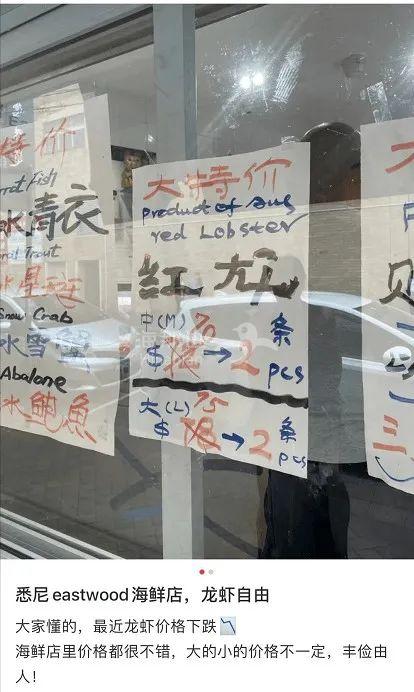 特价
rrot Fish
水清衣
ral Trout
水星斑
Snow Crab
水雪蟹
Abalone
水鲍魚
大特价
product of Aus
red Lobster
红龙
中(M) 70 条
$ → 2 pcs
大(L) 75 条
$ → 2 pcs
三
悉尼 eastwood 海鲜店，龙虾自由
大家懂的，最近龙虾价格下跌📉
海鲜店里价格都很不错，大的小的价格不一定，丰俭由
人！